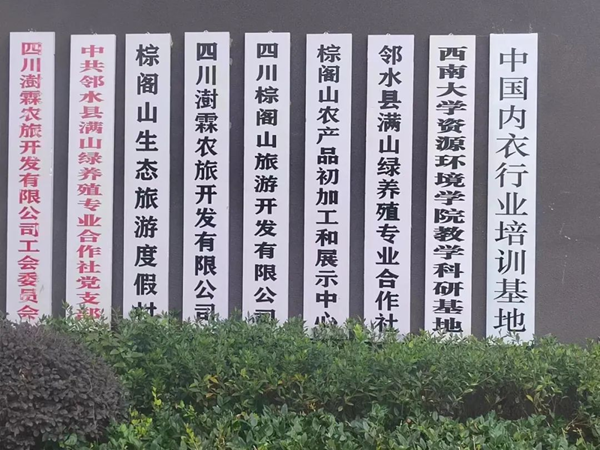 四川澍霖农旅开发有限公司工会委员会
中共邻水县满山绿养殖专业合作社党支部
棕阁山生态旅游度假村
四川澍霖农旅开发有限公司
四川棕阁山旅游开发有限公司
棕阁山农产品初加工和展示中心
邻水县满山绿养殖专业合作社
西南大学资源环境学院教学科研基地
中国内衣行业培训基地